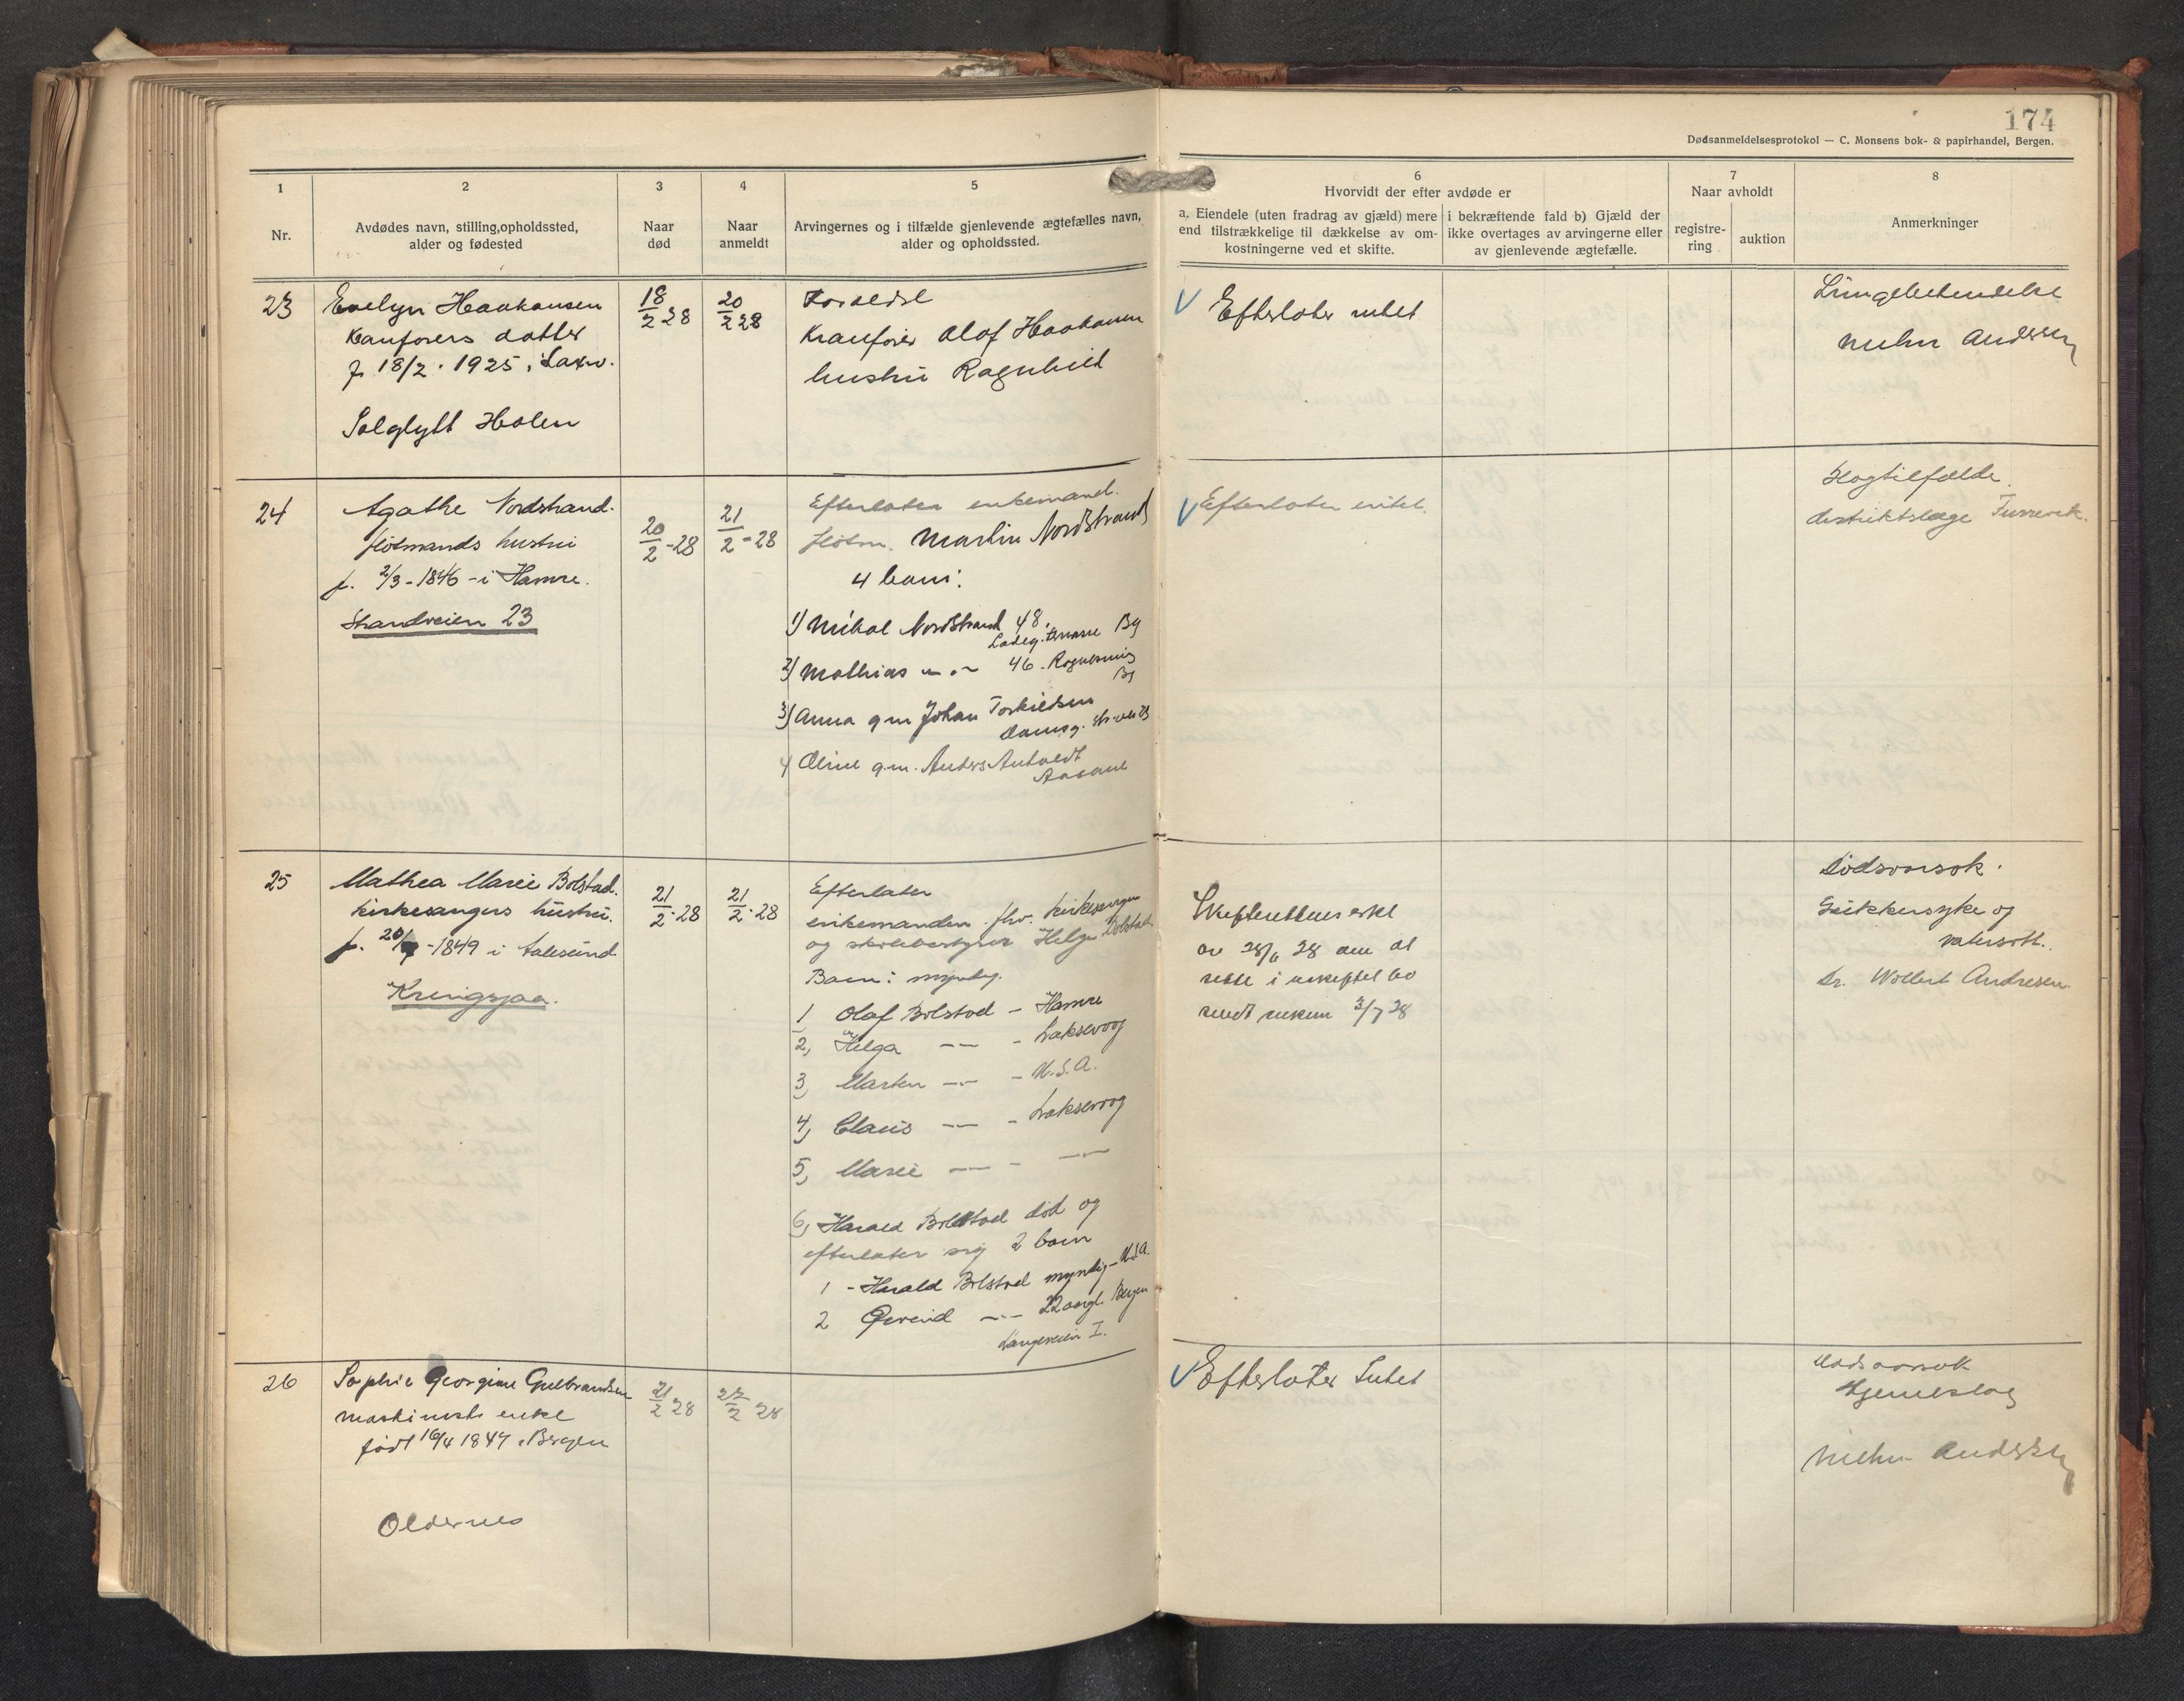 174
Dødsanmeldelsesprotokol — C. Monsens bok- & papirhandel, Bergen.
1
Nr.
2
Avdødes navn, stilling, opholdssted,
alder og fødested
3
Naar
død
4
Naar
anmeldt
5
Arvingernes og i tilfælde gjenlevende ægtefælles navn,
alder og opholdssted.
6
Hvorvidt der efter avdøde er
a. Eiendele (uten fradrag av gjæld) mere
end tilstrækkelige til dækkelse av om-
kostningerne ved et skifte.
i bekræftende fald b) Gjæld der
ikke overtages av arvingerne eller
av gjenlevende ægtefælle.
7
Naar avholdt
registre-
ring
auktion
8
Anmerkninger
23
Evelyn Haakonsen
Kranførers datter
f. 18/2 · 1925 i Laxv.
Solglytt Holen
18/2 28
20/2 28
Forældre
Kranfører Olaf Haakonsen
hustru Ragnhild
Efterlater intet
Lungebetendelse
Andersen
24
Agathe Nordstrand.
fløtmands hustru
f. 2/3 - 1846 - i Hamre.
Strandveien 23
20/2 - 28
21/2 - 28
Efterlater enkemand.
fløtm. Martin Nordstrand
4 barn:
1) Mikal Nordstrand 48,
Ladeg. terrasse Bg
2) Mathias — " — 46 -
Bg
3) Anna g m Johan Torkildsen
Damsg.
4 Oline g.m. Anders
Aasane
Efterlater intet.
Slagtilfælde.
distriktslæge
25
Mathea Marie Bolstad.
kirkesangers hustru.
f. 20/ - 1849 i Aalesund
Kringsjaa.
21/2 · 28
21/2 · 28
Efterlater
enkemanden fhv. kirkesanger
og skolebestyrer Helge Bolstad
Barn: myndig.
1 Olaf Bolstad - Hamre
2, Helga — — - Laksevaag
3, Marten — — - U.S.A.
4, Claus — — - Laksevaag
5, Marie — — - — —
6, Harald Bolstad død og
efterlater sig 2 barn
1 - Harald Bolstad myndig - U.S.A.
2 Øivind — — 22 aar gl. Bergen
Langeveien I.
Skifterettens
av 28/6 28 om at
sitte i uskiftet bo
sendt enkem 3/7 28
Dødsaarsak.
Sukkersyke og
vatersott.
Dr. Wollert Andresen.
26
Sophie Georgine Gulbrandsen
maskinists enke
født 16/4 1847 i Bergen
Oldernes
21/2 28
22/2 28
Efterlater Intet
Dødsaarsak
Hjerneslag
Andersen